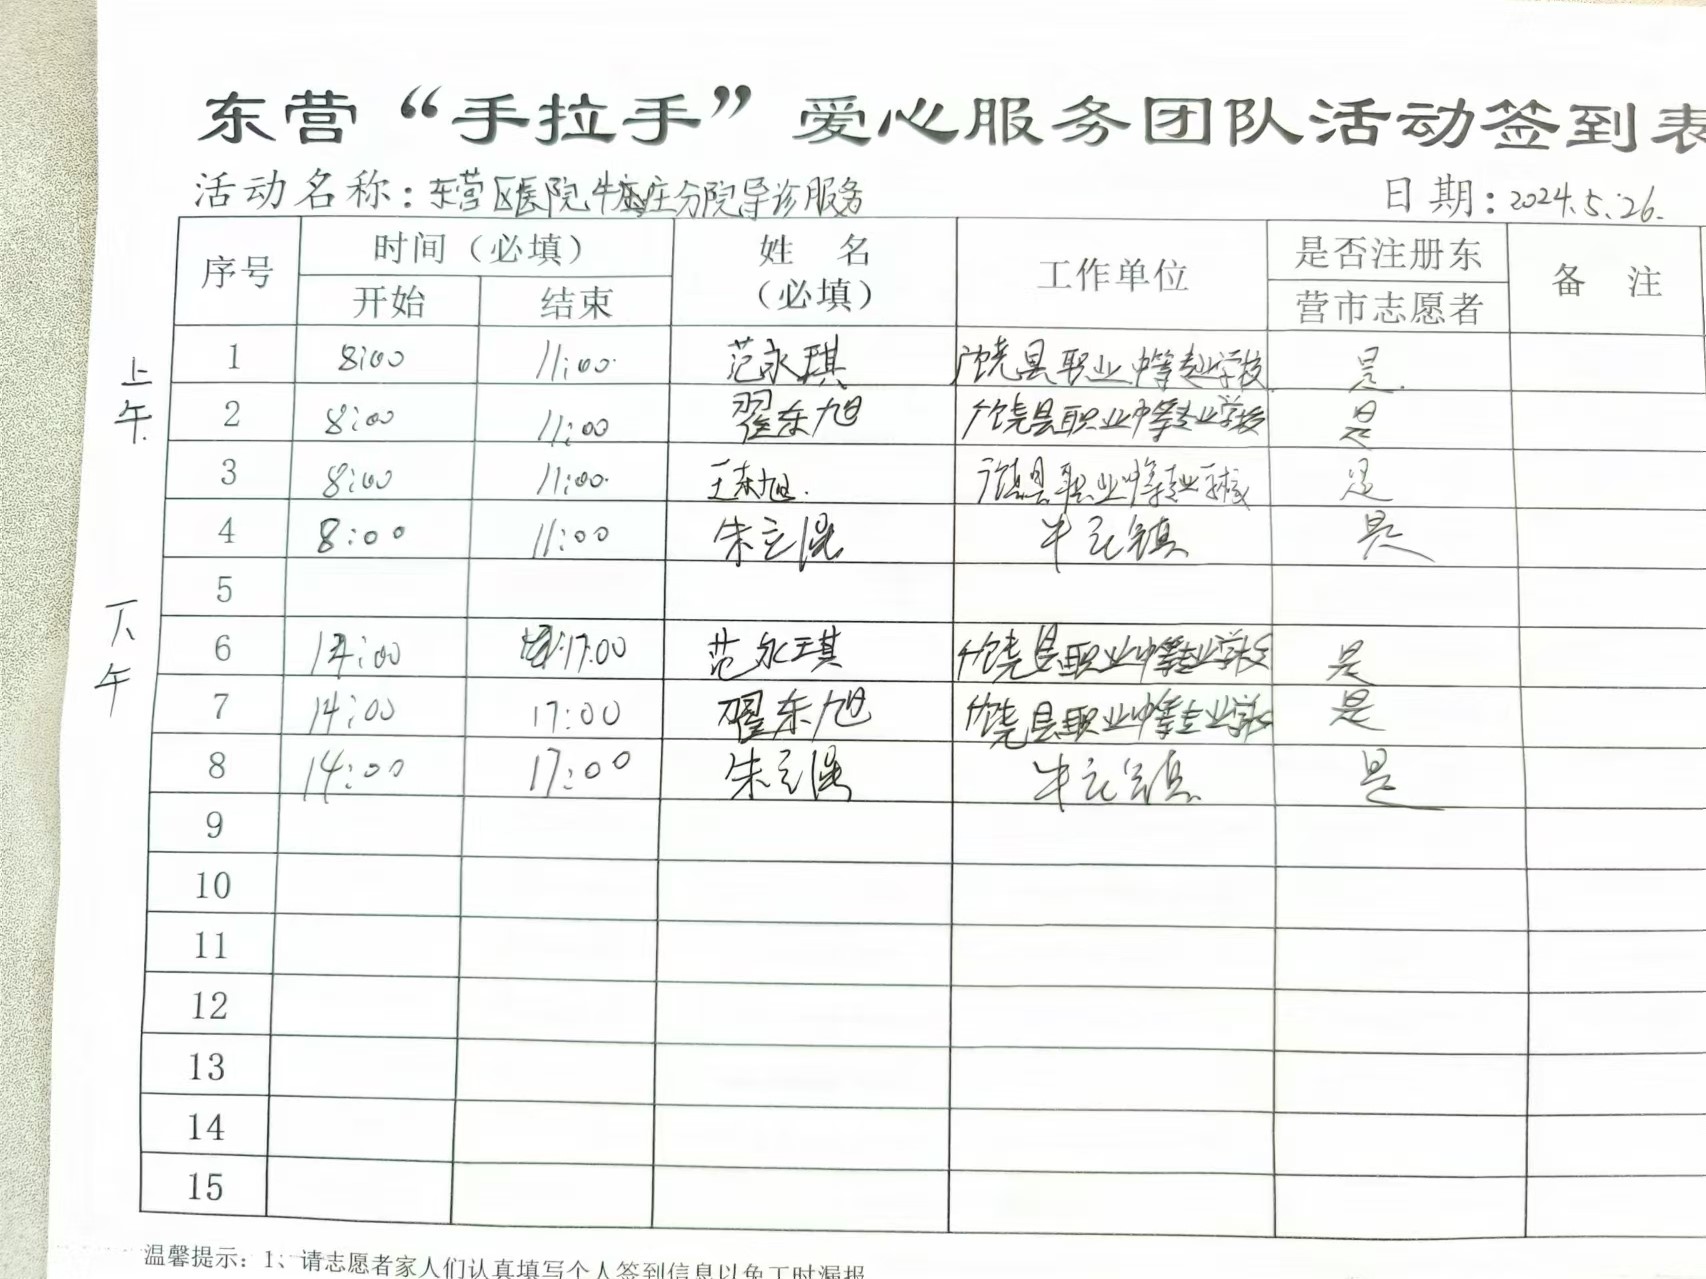 东营“手拉手”爱心服务团队活动签到表
活动名称：东营区医院牛庄分院导诊服务 日期：2024.5.26.
序号 时间（必填） 姓 名（必填） 工作单位 是否注册东营市志愿者 备 注
开始 结束
上午
1 8:00 11:00 范永琪 广饶县职业中等专业学校 是
2 8:00 11:00 翟东旭 广饶县职业中等专业学校 是
3 8:00 11:00 王东旭 广饶县职业中等专业学校 是
4 8:00 11:00 朱立 牛庄镇 是
5
下午
6 14:00 17:00 范永琪 广饶县职业中等专业学校 是
7 14:00 17:00 翟东旭 广饶县职业中等专业学校 是
8 14:00 17:00 朱立 牛庄镇 是
9
10
11
12
13
14
15
温馨提示：1、请志愿者家人们认真填写个人签到信息以免工时漏报